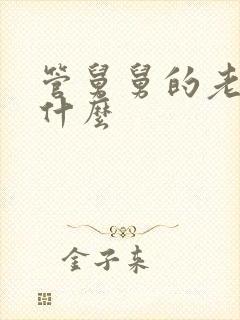 管舅舅的老
什麼
金子来